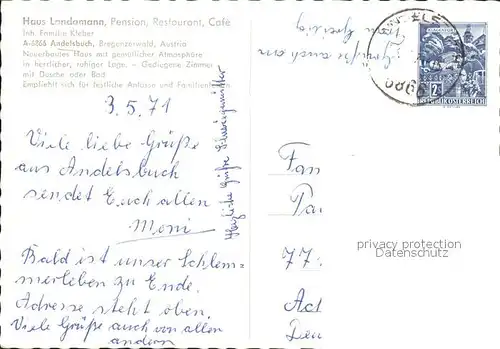 Haus Landamann, Pension, Restaurant, Café
Inh. Familie Kleber
A-6866 Andelsbuch, Bregenzerwald, Austria
Neuerbautes Haus mit gemütlicher Atmosphäre
in herrlicher, ruhiger Lage. - Gediegene Zimmer
mit Dusche oder Bad
Empfiehlt sich für festliche Anlässe und Familienfeiern
3.5.71
Viele liebe Grüße
aus Andelsbuch
sendet Euch allen
Moni
Bald ist unser Schlem-
merleben zu Ende.
Adresse steht oben.
Viele Grüße auch von allen
andern
Herzliche Grüße
Grüße auch
6866
REPUBLIK ÖSTERREICH
Fam
77
privacy protection
Datenschutz